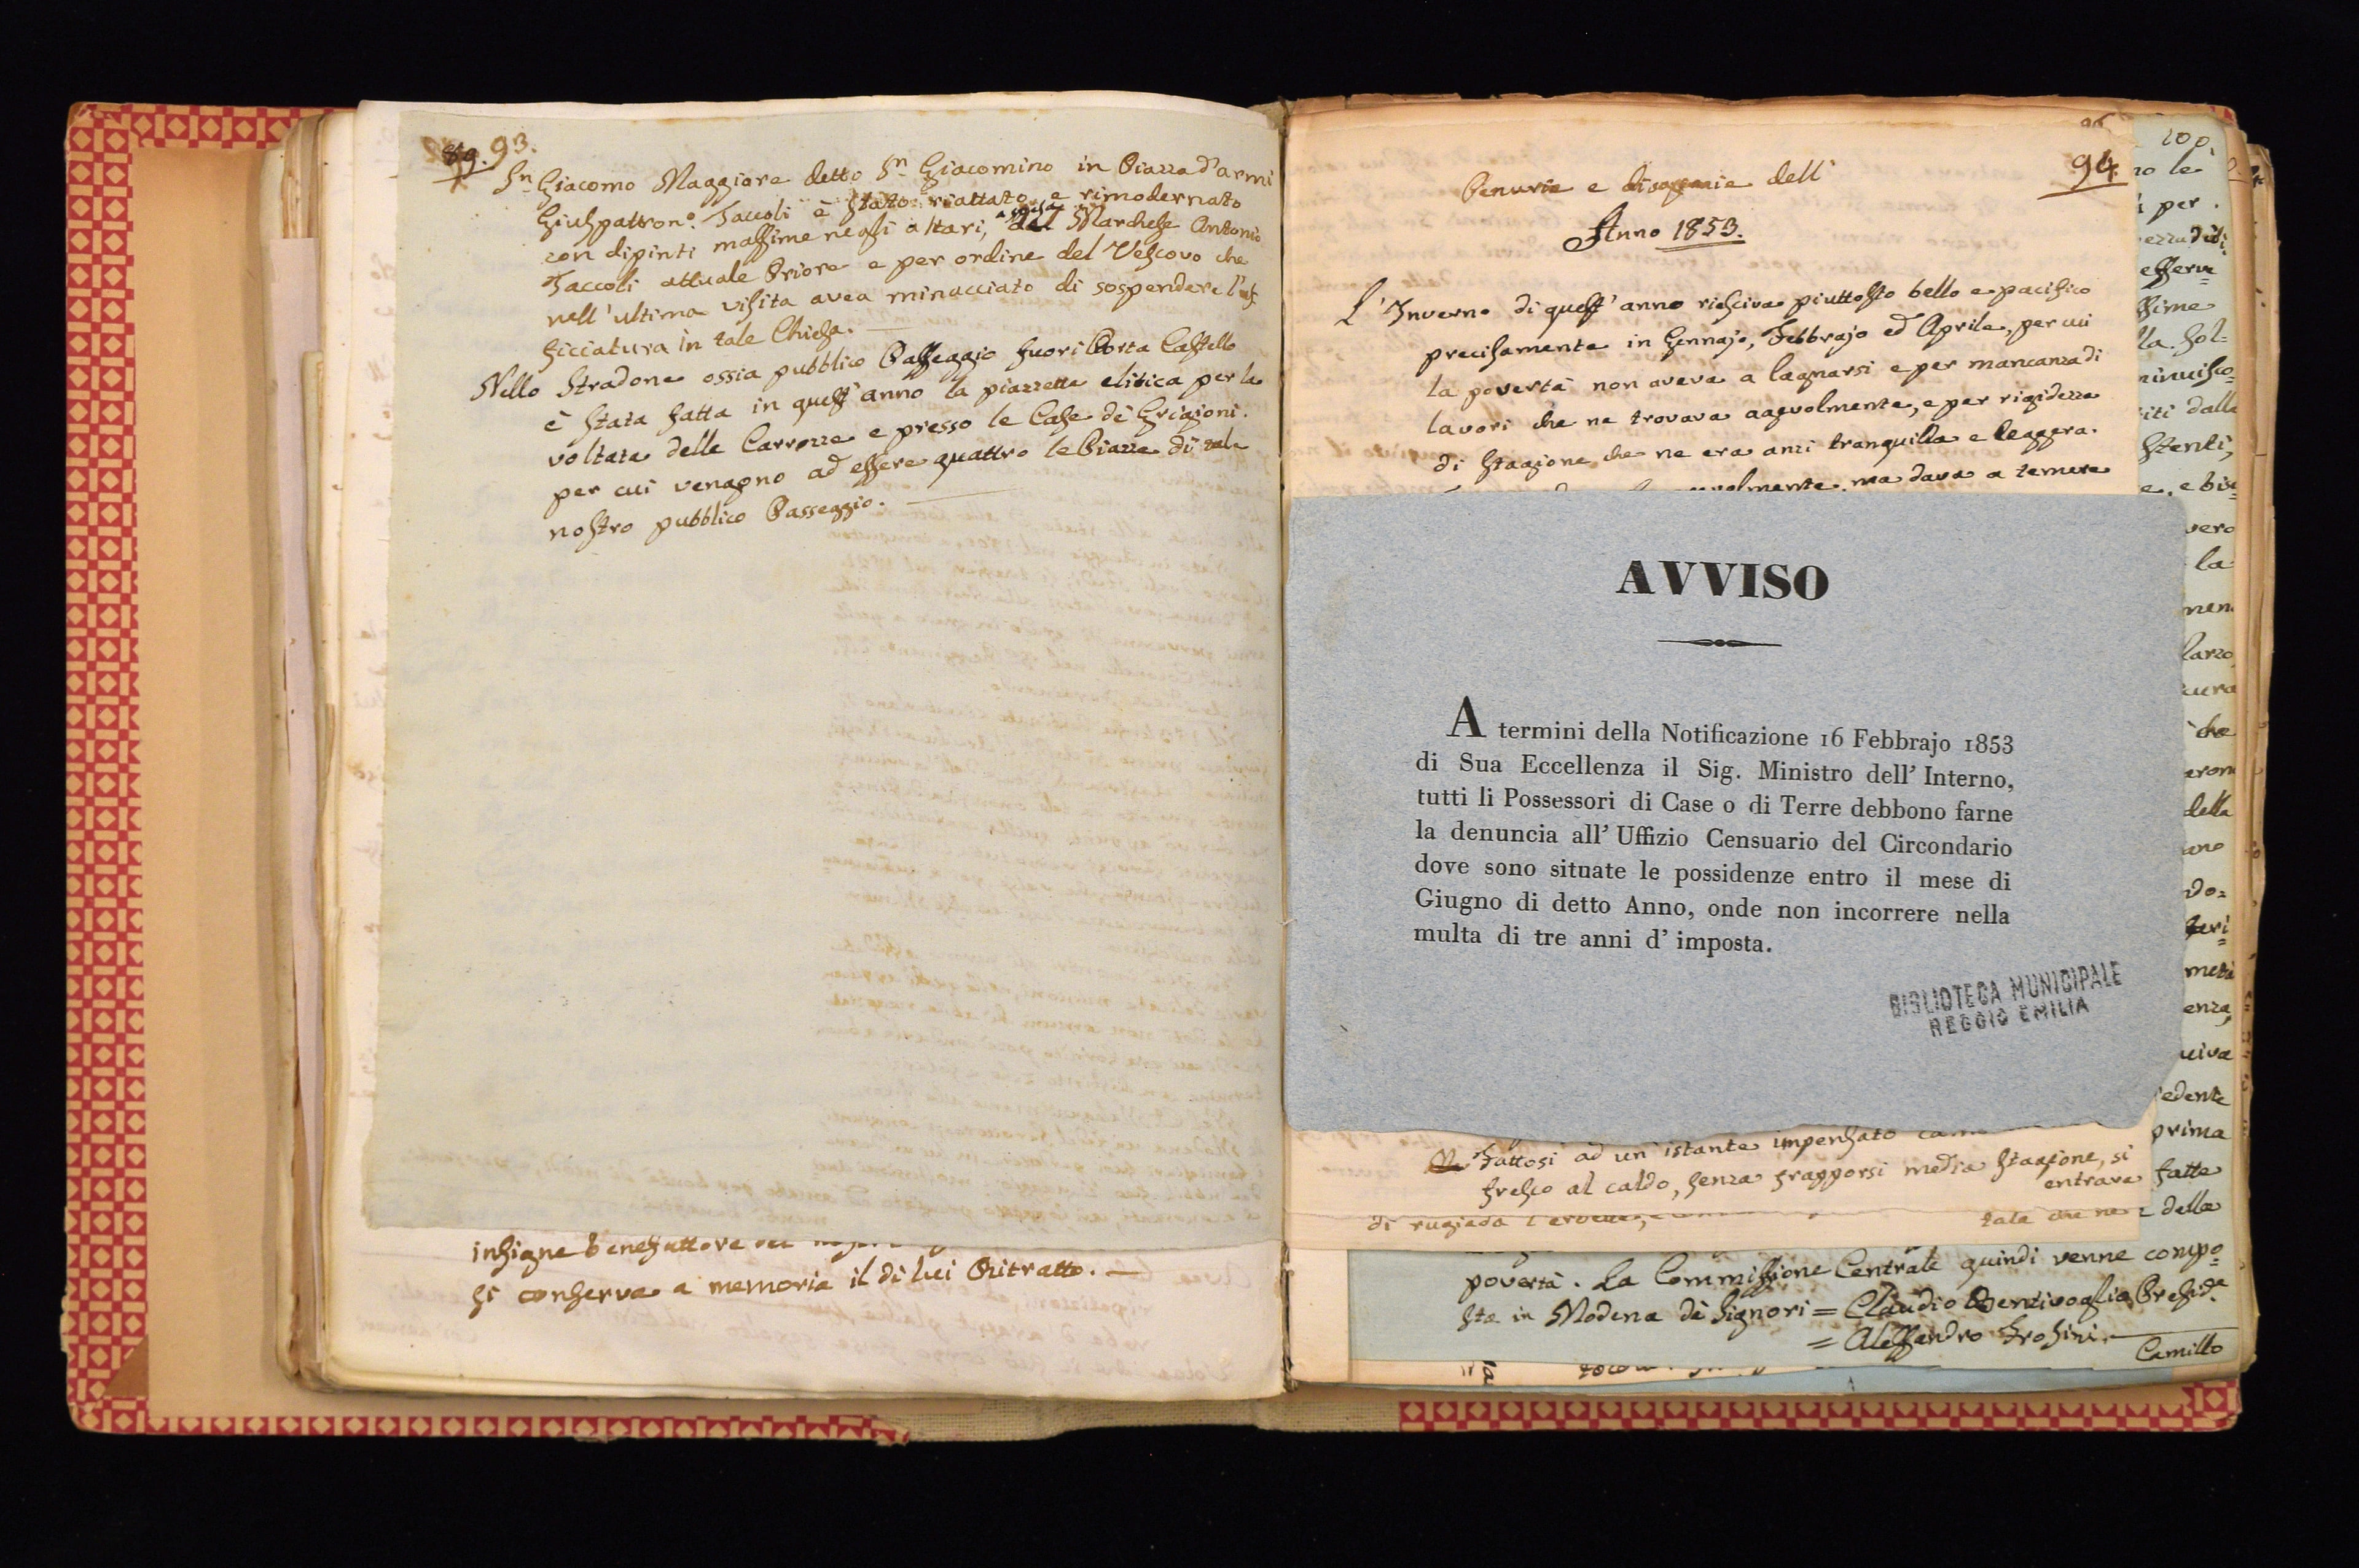 89. 93.
Sn Giacomo Maggiore detto Sn Giacomino in Piazza d'armi
Giuspattron.o Taccoli è stato riattato e rimodernato
con dipinti massime negli altari, a spese del Marchese Antonio
Taccoli attuale Priore e per ordine del Vescovo che
nell'ultima visita avea minacciato di sospendere l'uf=
ficiatura in tale Chiesa. —
Nello Stradone ossia pubblico Passeggio fuori Porta Castello
è stata fatta in quest'anno la piazzetta elitica per la
voltata delle Carrozze e presso le Case de Grigioni.
per cui vengono ad essere quattro le Piazze di tale
nostro pubblico Passeggio. —
insigne benefattore
si conserva a memoria il di lui Ritratto. —
94.
Penurie e disgrazie dell'
Anno 1853.
L'Inverno di quest'anno riesciva piuttosto bello e pacifico
precisamente in Gennajo, Febbrajo ed Aprile, per cui
la povertà non aveva a lagnarsi e per mancanza di
lavori che ne trovava agevolmente, e per rigidezza
di stagione che ne era anzi tranquilla e leggera.
ma dava a temere
AVVISO
A termini della Notificazione 16 Febbrajo 1853
di Sua Eccellenza il Sig. Ministro dell' Interno,
tutti li Possessori di Case o di Terre debbono farne
la denuncia all' Uffizio Censuario del Circondario
dove sono situate le possidenze entro il mese di
Giugno di detto Anno, onde non incorrere nella
multa di tre anni d' imposta.
BIBLIOTECA MUNICIPALE
REGGIO EMILIA
Fattosi ad un istante impensato
fresco al caldo, senza frapporsi media stagione, si
entrava
di rugiada
tale che ne
povertà. La Commissione Centrale quindi venne compo=
sta in Modena dè Signori = Claudio Bentivoglio Presid.e
= Alessandro Frosini. —
Camillo
100.
no le
per.
esser=
ssime
la sol=
minuisco=
iti dalle
stenti,
e, e bis
vero
la
men
Marzo
cura
che
eron
della
ano
do=
feri=
metà
enza,
uiva
edente
prima
fatte
della